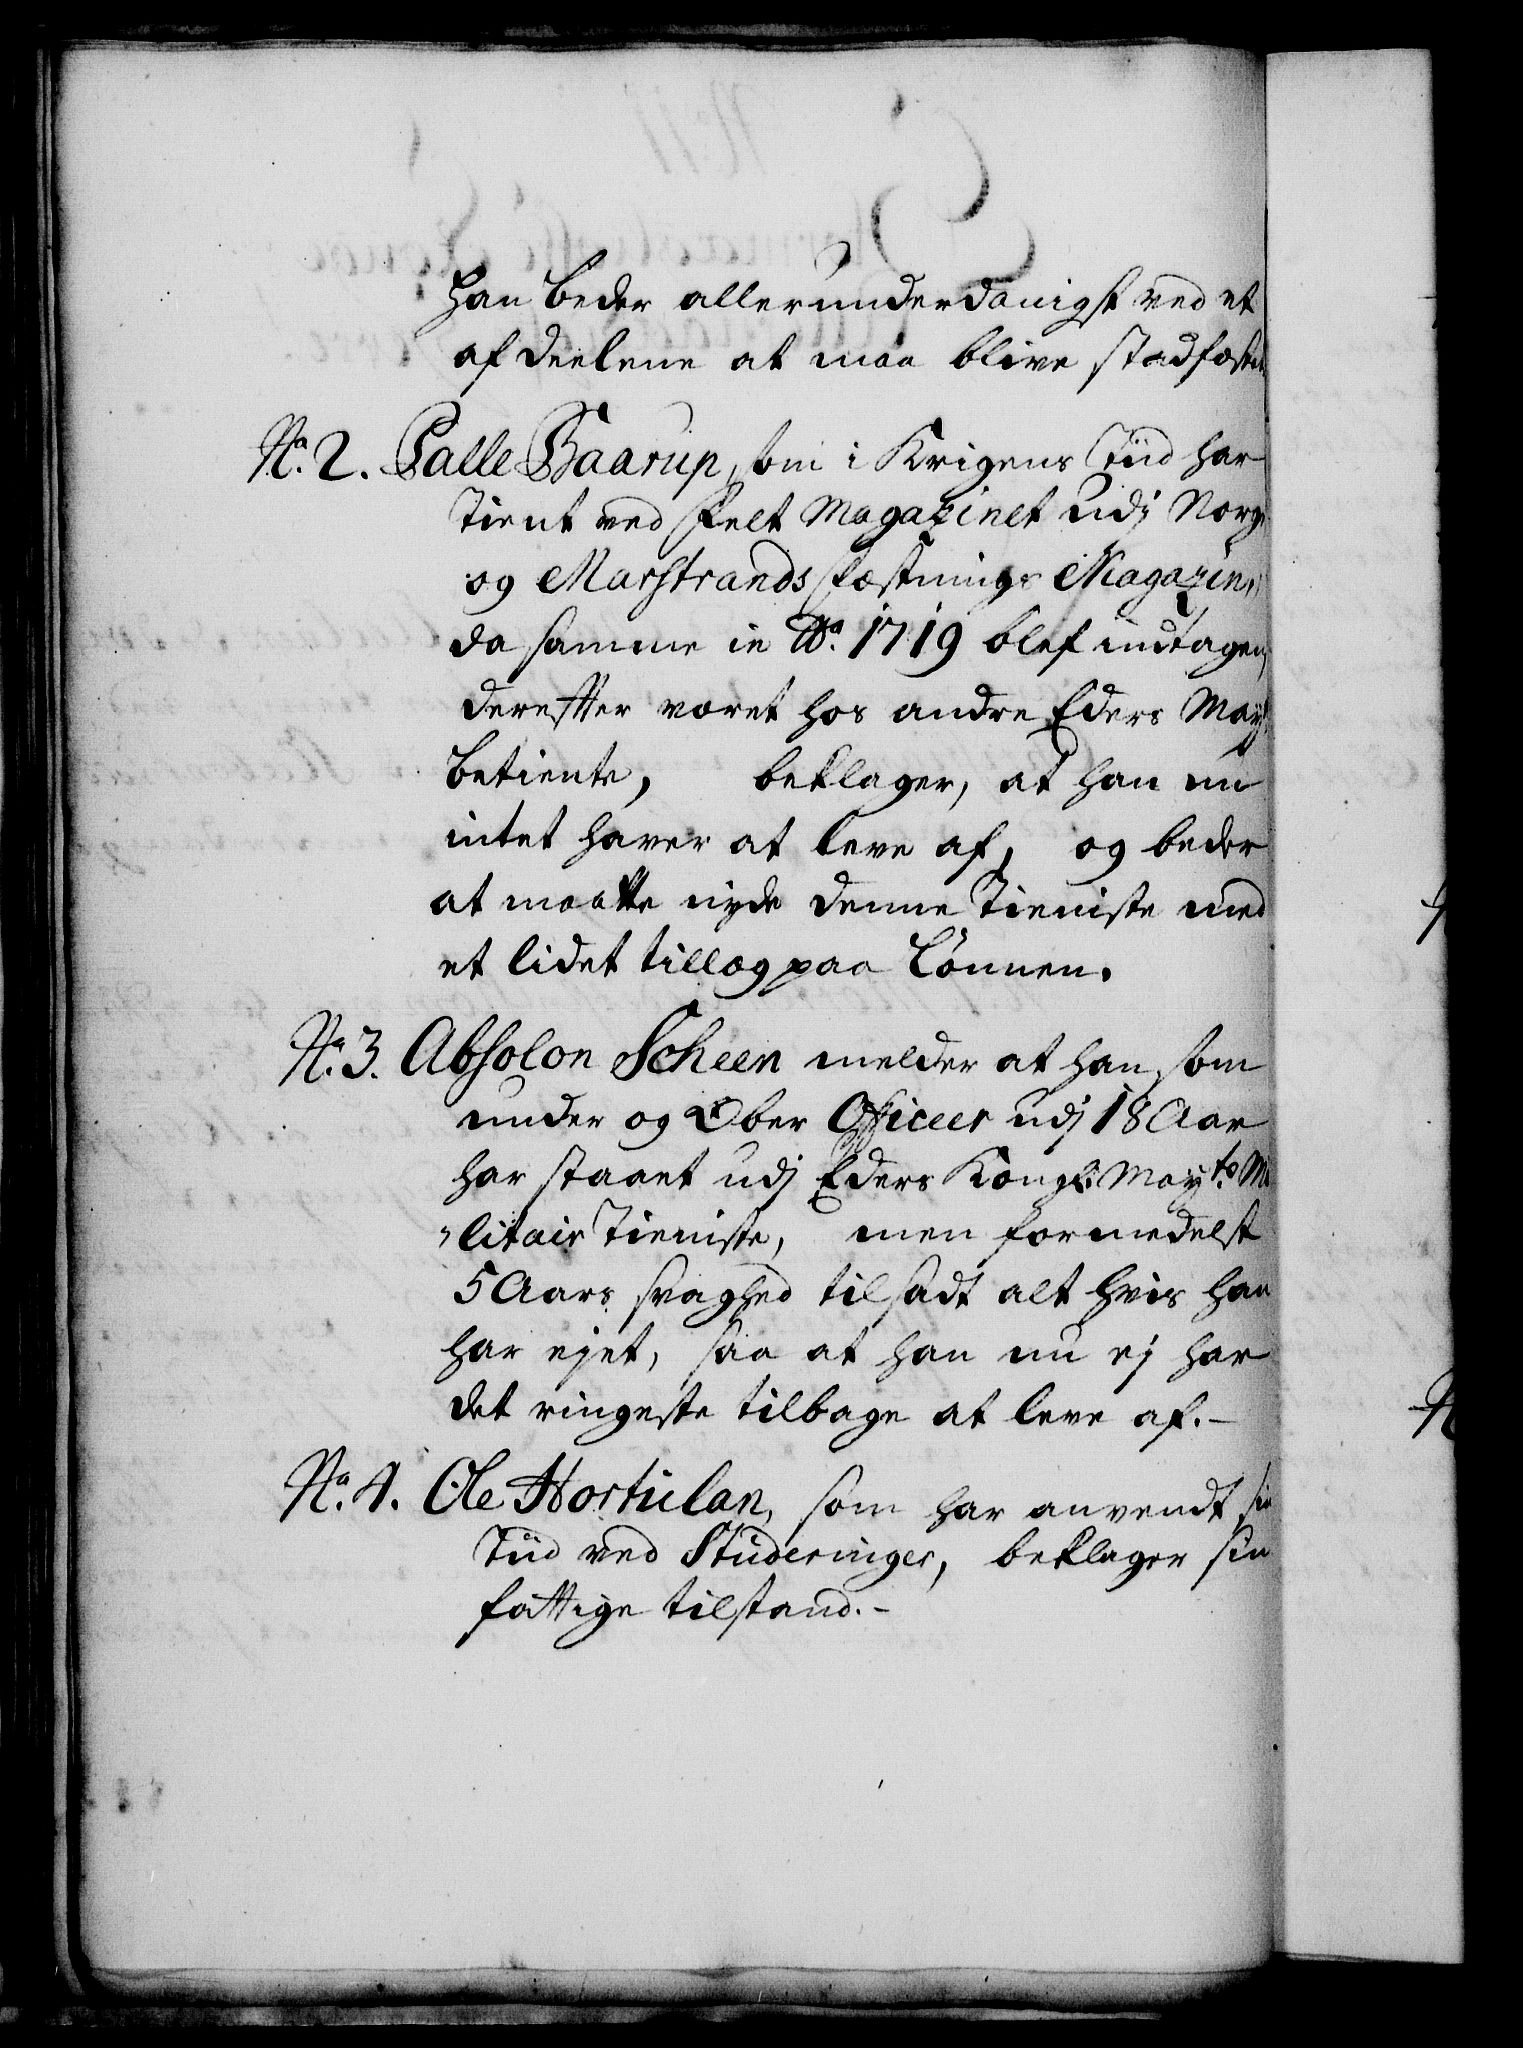 Han beder allerunderdanigst ved et
af deelene at maa blive stadfæstet.
No. 2. Palle Baarup, som i Krigens Tiid har
Tient ved Felt Magazinet udj Norge
og Marstrands Fæstnings Magazin,
da samme in Ao. 1719 blef indtagen,
derefter været hos andre Eders Mayts.
betiente, beklager, at han nu
intet haver at leve af, og beder
at maatte nyde denne Tieniste med
et lidet tillæg paa Lønnen.
No. 3. Absolon Scheen melder at han som
under og Ober Officeer udj 18 Aar
har staaet udj Eders Kongl: Mayts. Mi
„litair Tieniste, men formedelst
5 Aars svaghed tilsadt alt hvis han
har ejet, saa at han nu ej har
det ringeste tilbage at leve af.-
No. 4. Ole Hortulan, som har anvendt sin
Tiid ved Studeringer, beklager sin
fattige tilstand.-